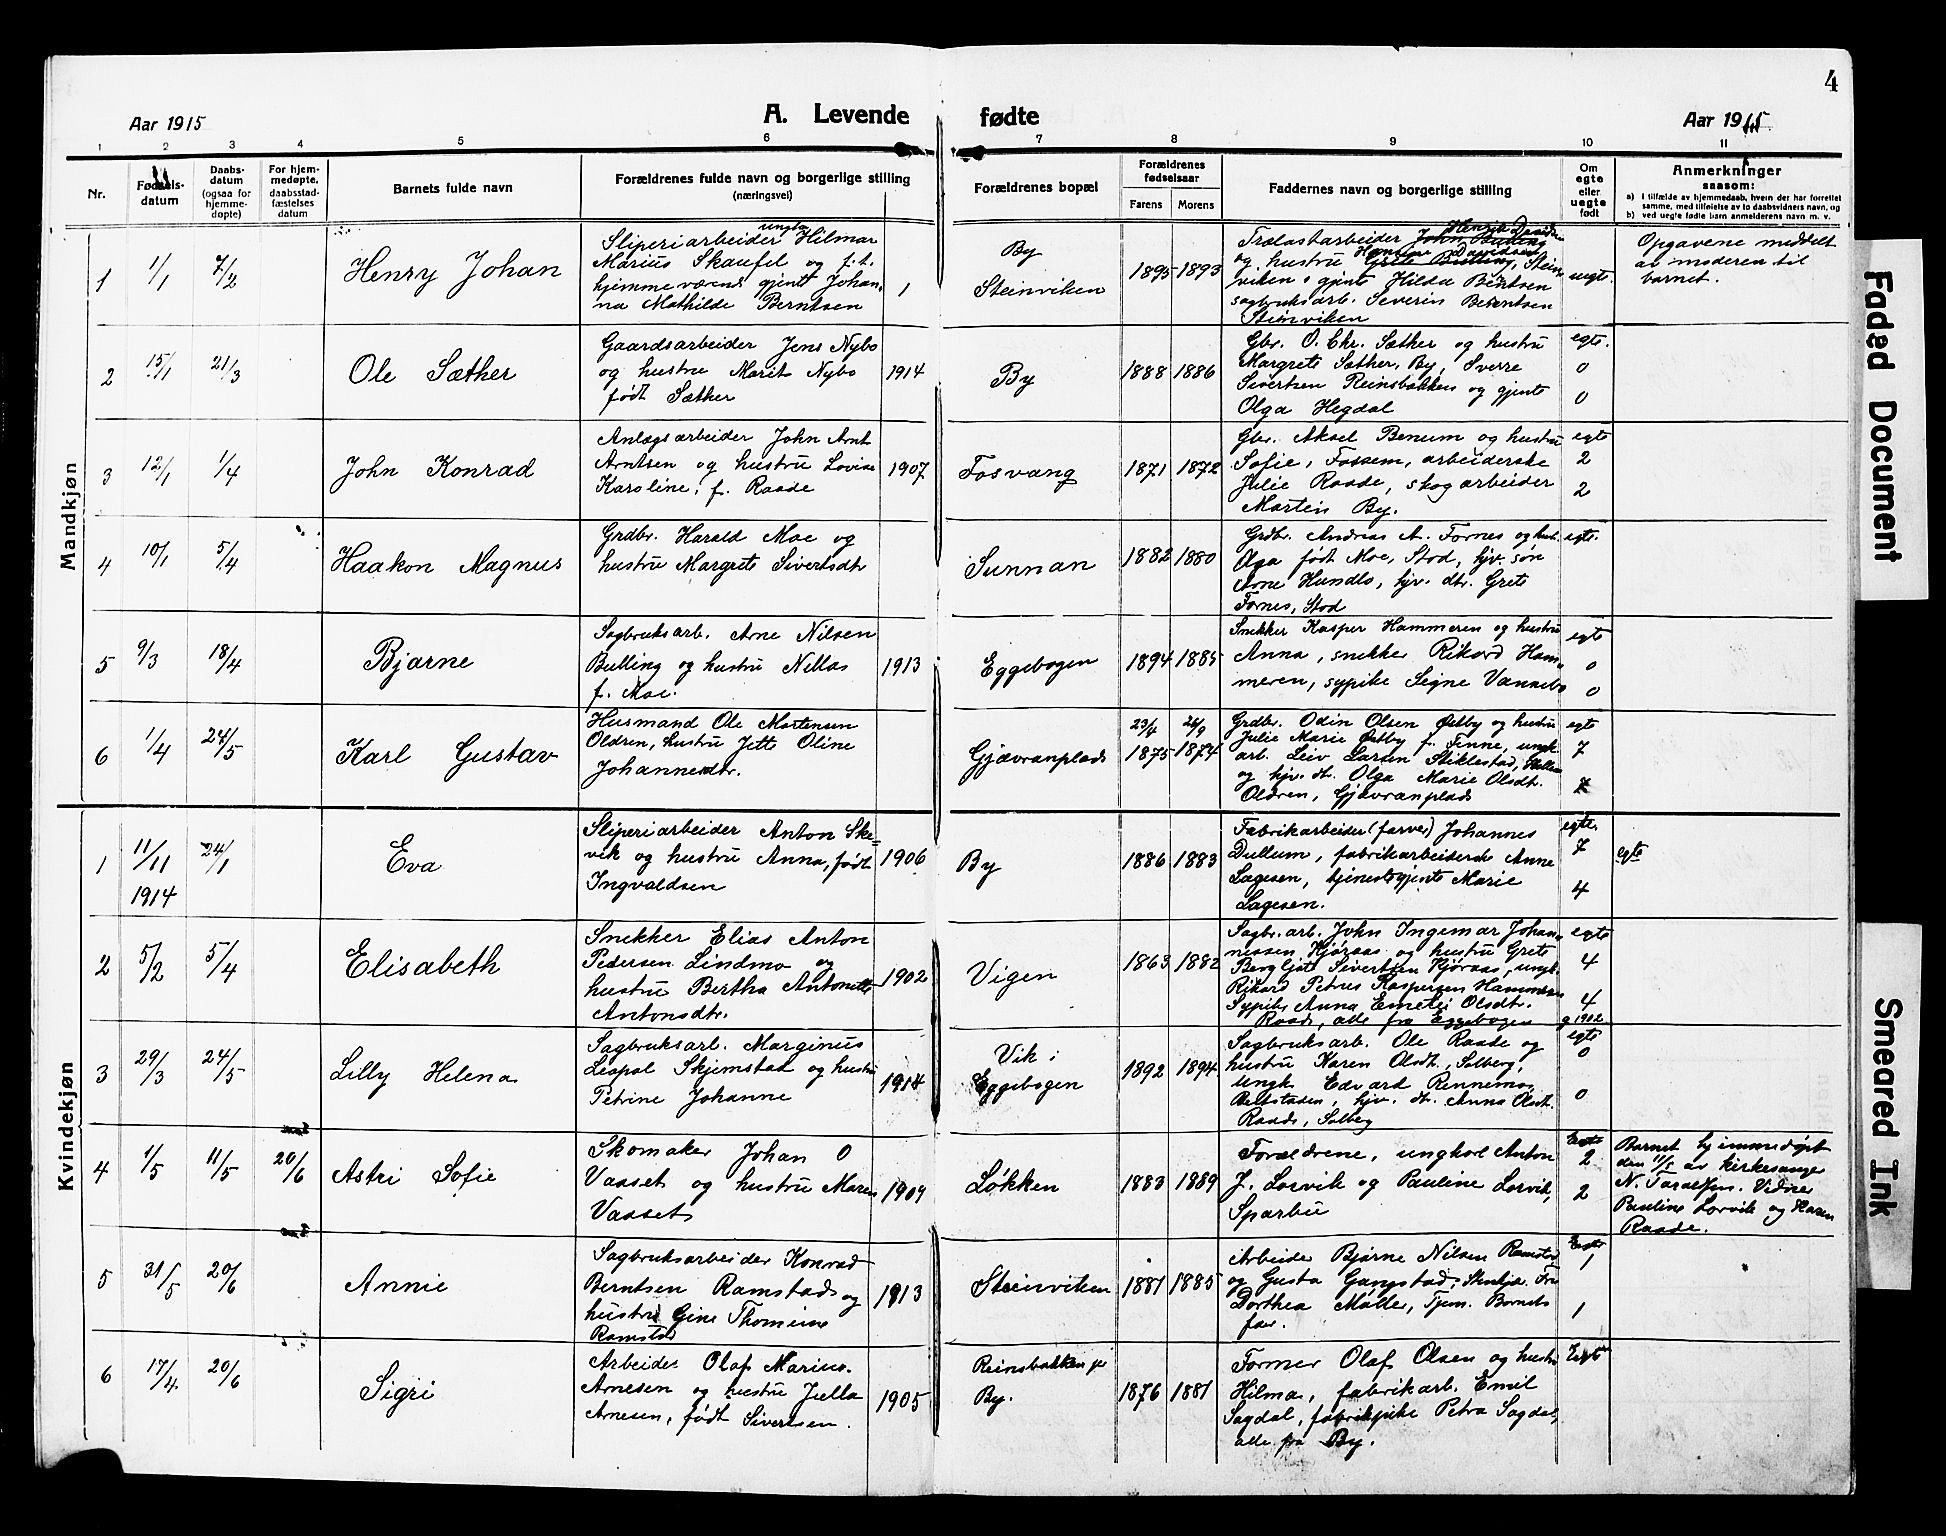 4
Aar 1915
A. Levende
fødte
Aar 1915.
1 2 3 4 5 6 7 8 9 10 11
Nr.
Fødsels-
datum
Daabs-
datum
(ogsaa for
hjemme-
døpte)
For hjem-
medøpte,
daabsstad-
fæstelses
datum
Barnets fulde navn
Forældrenes fulde navn og borgerlige stilling
(næringsvei)
Forældrenes bopæl
Forældrenes
fødselsaar
Farens
Morens
Faddernes navn og borgerlige stilling
Om
egte
eller
uegte
født
Anmerkninger
saasom:
a) i tilfælde av hjemmedaab, hvem der har forrettet
samme, med tilføielse av to daabsvidners navn, og
b) ved uegte fødte barn anmelderens navn m. v.
Mandkjøn
1
1/1
7/2
Henry Johan
ungk.
Sliperiarbeider Hilmar
Marius Skaufel og f.t.
hjemmeværende gjente Johan-
na Mathilde Berntsen
1
By
Steinviken
1895
1893
Henrik Davidsen
Trælastarbeider John Bulling
og hustru Grete Bulling, Stein-
viken, gjente Hilda Berntsen
sagbruksarb. Severin Berntsen
Steinviken
uegte.
Opgavene meddelt
av moderen til
barnet.
2
15/1
21/3
Ole Sæther
Gaardsarbeider Jens Nybo
og hustru Marit Nybo
født Sæther
1914
By
1888
1886
Gbr. O. Chr. Sæther og hustru
Margrete Sæther, By, Sverre
Sivertsen Reinsbakken og gjente
Olga Hegdal
egte.
0
0
3
12/1
1/4
John Konrad
Anlægsarbeider John Arnt
Arntsen og hustru Lovise
Karoline, f. Raade
1907
Fosvang
1871
1872
Gbr. Aksel Benum og hustru
Sofie, Fossem, arbeiderske
Julie Raade, skogarbeider
Martin By.
egte
2
2
4
10/1
5/4
Haakon Magnus
Grdbr. Harald Moe og
hustru Margrete Sivertsdtr
Sunnan
1882
1880
Grdbr. Andrias A. Fornes og hust.
Olga født Moe, Stod, hjv. søn
Arne Hundlo, hjv. dtr. Grete
Fornes, Stod
egte.
5
9/3
18/4
Bjarne
Sagbruksarb. Arne Nilsen
Bulling og hustru Nillas
f. Moe.
1913
Eggebogen
1894
1885
Snekker Kasper Hammeren og hustru
Anna, snekker Rikard Ham-
meren, sypike Segne Vannebo
egte
0
0
6
1/4
24/5
Karl Gustav
Husmand Ole Mortensen
Oldren, hustru Jette Oline
Johannesdtr.
Gjævranplads
23/4
26/9
1875
1874
Grdbr. Odin Olsen Østby og hustru
Julie Marie Østby f. Finne, ungk.
arb. Leiv Larsen Stiklestad,
og hjv. dt. Olga Marie Olsdt.
Oldren, Gjævranplads
egte
7
7
Kvindekjøn
1
11/11
1914
24/1
Eva
Sliperiarbeider Anton Ske-
vik og hustru Anna, født
Ingvaldsen
1906
By
1886
1883
Fabrikarbeider (farver) Johannes
Dullum, fabrikarbeiderske Anne
Lagesen, tjenestegjente Marie
Lagesen.
egte.
7
4
egte
2
5/2
5/4
Elisabeth
Snekker Elias Anton
Pedersen Lindmo og
hustru Bertha Antonette
Antonsdtr.
1902
Vigen
1863
1882
Sagbr. arb. John Ingemar Johan-
nessen Hjøraas og hustru Grete
Bergljot Sivertsen Hjøraas, ungk.
Rikard Petrus Kaspersen Hammeren
Sypike Anna Emelie Olsdtr.
Raade, alle fra Eggebogen
egte
4
4
g 1902
3
29/3
24/5
Lilly Helena
Sagbruksarb. Marginus
Leopol Skjemstad og hustru
Petrine Johanne
1914
Vik i
Eggebogen
1892
1894
Sagbruksarb. Ole Raade og
hustru Karen Olsdt., Solberg,
ungk. Edvard Rennemo,
Beitstaden, hjv. dt. Anna Olsdt.
Raade, Solberg
egte
0
0
4
1/5
11/5
20/6
Astri Sofie
Skomaker Johan O
Vasset og hustru Maren
Vasset
1909
Løkken
1883
1889
Forældrene, ungkarl Anton
J. Lorvik og Pauline Lorvik,
Sparbu
Egte
2
2
Barnet hjemmedøpt
den 11/5 av kirkesanger
N. Taraldsen. Vidner
Pauline Lorvik og Karen
Raade.
5
31/5
20/6
Annie
Sagbruksarbeider Konrad
Berntsen Ramstad og
hustru Gine Thomine
Ramstad
1913
Steinviken
1881
1885
Arbeider Bjarne Nilsen Ramstad
og Gusta Gangstad, Stenkjær. Fru
Dorthea Møller, Tjem. Barnets
far.
Egte
1
1
6
17/4
20/6
Sigri
Arbeider Olaf Marius
Arnesen og hustru Julla
Arnesen, født Sivertsen.
1905
Reinsbakken pr
By.
1876
1881
Former Olaf Olsen og hustru
Hilma, fabrikarb. Emil
Sagdal, fabrikpike Petra Sagdal,
alle fra By.
Egte
Faded Document
Smeared Ink